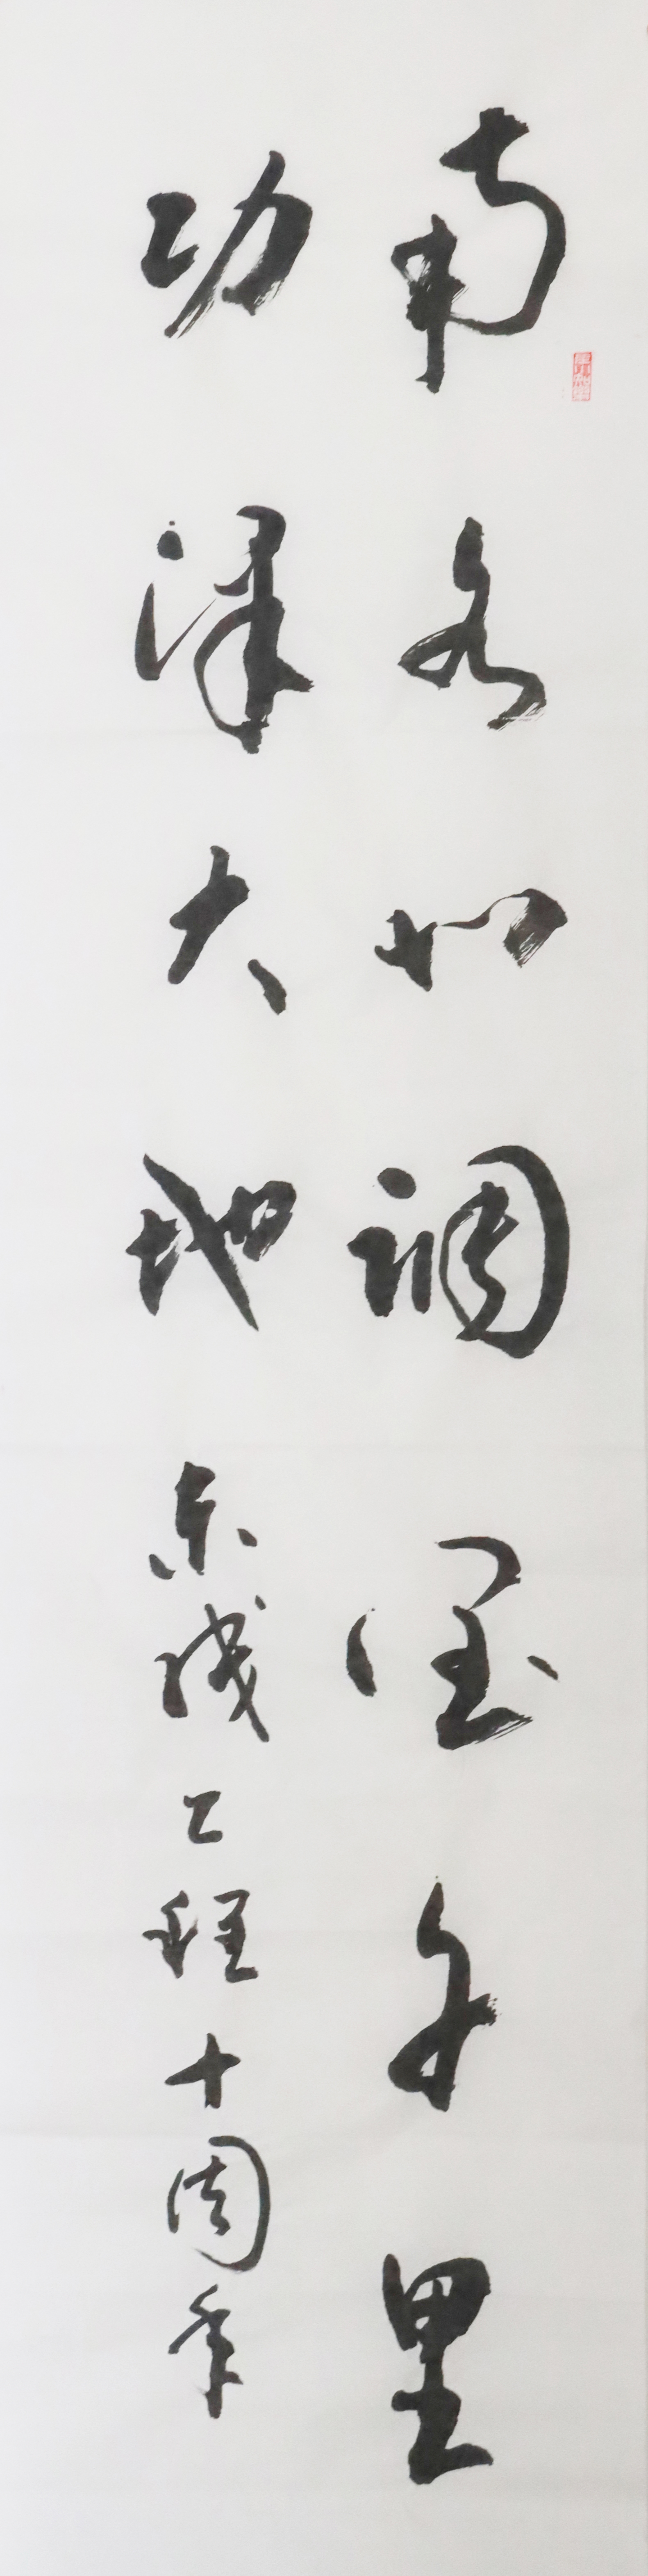 南水北调千里
功泽大地 东线工程十周年